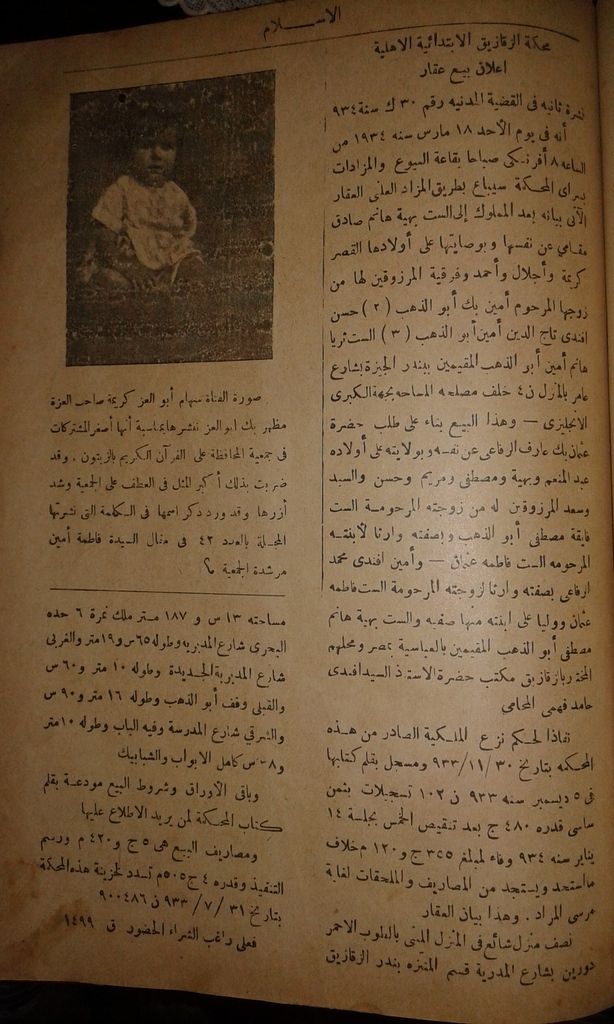 الاسلام
محكمة الزقازيق الابتدائية الاهلية
اعلان بيع عقار
نمرة ثانيه فى القضية المدنيه رقم ٣٠ ك سنة ٩٣٤
أنه فى يوم الأحد ١٨ مارس سنه ١٩٣٤ من
الساعه ٨ أفرنكى صباحا بقاعة البيوع والمزادات
بسراى المحكمة سيباع بطريق المزاد العلنى العقار
الآتى بيانه بعد المملوك إلى الست بهية هانم صادق
مقامي عن نفسها وبوصايتها على أولادها القصر
كريمة وأجلال وأحمد وفرقية المرزوقين لها من
زوجها المرحوم أمين بك أبو الذهب (٢) حسن
افندى تاج الدين أمين أبو الذهب (٣) الست ثريا
هانم أمين أبو الذهب المقيمين ببندر الجيزة بشارع
عامر بالمنزل ن ٤ خلف مصلحه المساحه بجهة الكبرى
الانجليزى — وهذا البيع بناء على طلب حضرة
عثمان بك عارف الرفاعى عن نفسه وبولايته على أولاده
عبد المنعم وبهية ومصطفى ومريم وحسن والسيد
وسعد المرزوقين له من زوجته المرحومة الست
فايقة مصطفى أبو الذهب وبصفته وارثا لابنته
المرحومه الست فاطمه عثمان — وأمين افندى محمد
الرفاعى بصفته وارثا لزوجته المرحومة الست فاطمه
عثمان ووليا على ابنته منها صفيه والست بهية هانم
مصطفى أبو الذهب المقيمين بالعباسية بمصر ومحلهم
المختار بالزقازيق مكتب حضرة الاستاذ السيد افندى
حامد فهمى المحامى
نفاذا لحكم نزع الملكية الصادر من هذه
المحكمه بتاريخ ٣٠ /١١ /٩٣٣ ومسجل بقلم كتابها
فى ٥ ديسمبر سنه ٩٣٣ ن ١٠٢ تسجيلات بثمن
أساسى قدره ٤٨٠ ج بعد تنقيص الخمس بجلسة ١٤
يناير سنه ٩٣٤ وفاء لمبلغ ٣٤٥ ج و ١٢٠ م خلاف
ما استجد ويستجد من المصاريف والملحقات لغاية
مرسى المزاد . وهذا بيان العقار
نصف منزل شائع فى المنزل المبنى بالطوب الاحمر
دورين بشارع المديرية قسم المنتزه بندر الزقازيق
صورة الفتاة سهام أبو العز كريمة صاحب العزة
مظهر بك ابو العز ننشرها بمناسبة أنها أصغر المشتركات
فى جمعية المحافظة على القرآن الكريم بالزيتون . وقد
ضربت بذلك أكبر المثل فى العطف على الجمعية وشد
أزرها وقد ورد ذكر اسمها فى الكلمة التى نشرتها
المجلة بالعدد ٤٢ فى مقال السيدة فاطمة أمين
مرشدة الجمعية
مساحته ١٣ س و ١٨٧ متر ملك نمرة ٦ حده
البحرى شارع المديريه وطوله ٦٥ س و ١٩ متر والغربى
شارع المديرية الجديدة وطوله ١٠ متر و ٦٠ س
والقبلى وقف أبو الذهب وطوله ١٦ متر و ٩٠ س
والشرقى شارع المدرسة وفيه الباب وطوله ١٠ متر
و ٢٨ س كامل الابواب والشبابيك
وباقى الأوراق وشروط البيع مودعة بقلم
كتاب المحكمة لمن يريد الاطلاع عليها
ومصاريف البيع هى ٥ ج و ٤٢٠ م ورسم
التنفيذ وقدره ٤ ج ٥٠٥ م تسدد لخزينة هذه المحكمة
بتاريخ ٣١ /٧ /٩٣٣ ن ٩٠٠٤٨٦
فعلى راغب الشراء الحضور ق ١٤٩٩